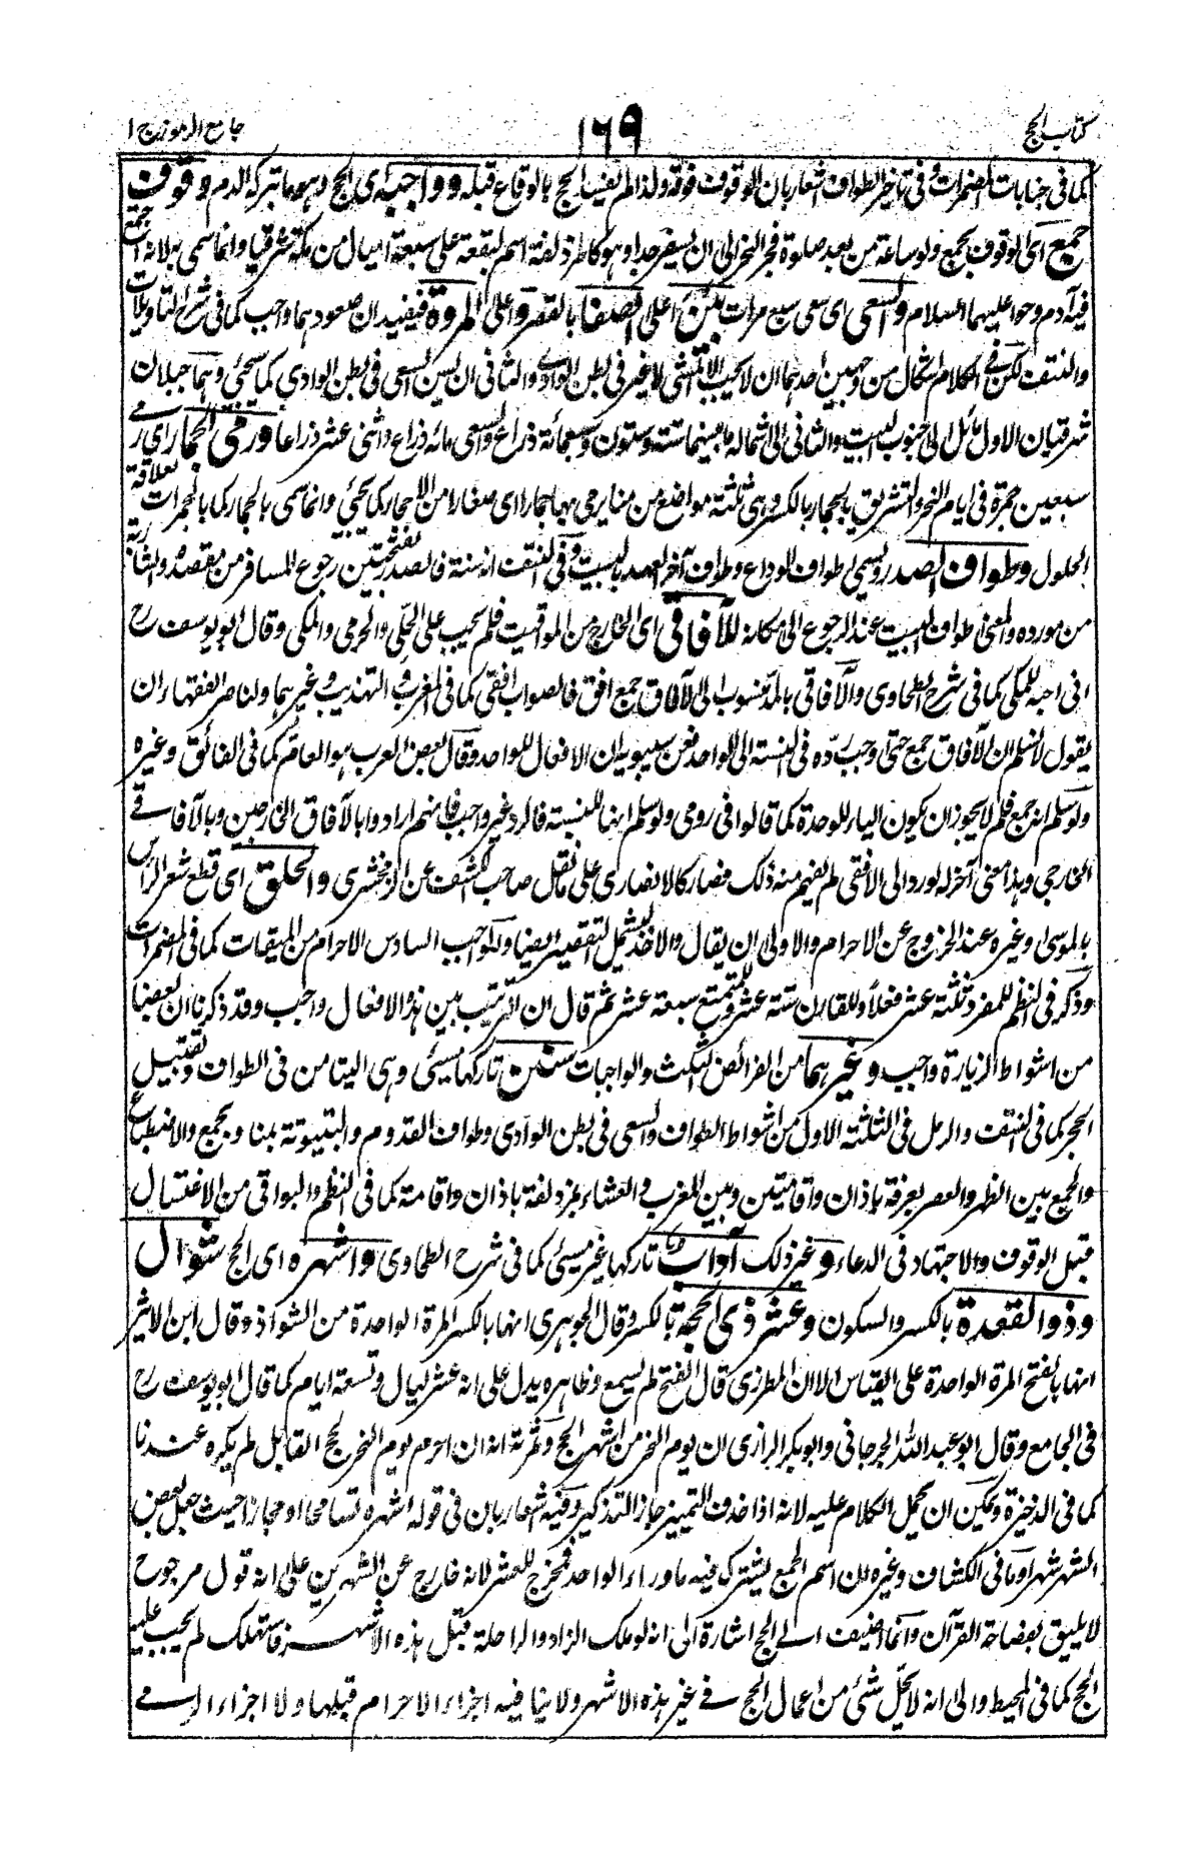 كتاب الحج
١٦٩
جامع الرموز ج ١
كما فى جنايات المضمرات وفى تاخير الطواف اشعار بان الوقوف فوقه ولذا لم يفسد الحج بالوقاع قبله وواجبه اى الحج وهو ما يتبركه الدم وقوف
جمع اى الوقوف بجمع ولو ساعة من بعد صلوة فجر النحر الى ان يسفر جدا وهو كالمزدلفة اسم لبقعة على سبعة اميال من مكة شرقيا وانما سمى به لانه اجتمع
فيه آدم وحوا عليهما السلام والسعى اى سعى سبع مرات بين اعلى الصفا بالقصر واعلى المروة فيفيد ان صعودهما واجب كما فى شرح التاويلات
والنتف لكن فى الكلام اشكال من وجهين احدهما ان لا يجب الا المشى لا غير فى بطن الوادى والثانى ان ليس السعى فى بطن الوادى كما سيجئ وهما جبلان
شرقيان الاول مائل الى جنوب البيت والثانى الى شماله ما بينهما ستة وستون وسبعمائة ذراع والسعى مائه ذراع واثنى عشر ذراعا ورمى الجمار اى رمى
سبعين جمرة فى ايام النحر والتشريق بالجمار بالكسر وهى ثلثة مواضع من منا يرمى بها جمارا اى صغارا من الاحجار كما يجئ وانما سمى بالجمار كما بالجمرات لعلاقة
الحلول وطواف الصدر ويسمى طواف الوداع وطواف آخر العهد بالبيت وفى النتف انه سنة فالصدر بفتحتين رجوع المسافر من مقصده والشاربة
من مورده والمعنى طواف البيت عند الرجوع الى مكانه للآفاقى اى الخارج من المواقيت فلم يجب على الحلى والحرمى والمكى وقال ابو يوسف رح
انى احبه للمكى كما فى شرح الطحاوى والآفاقى بالمد منسوب الى الآفاق جمع افق فالصواب افقى كما فى المغرب والتهذيب وغيرهما ولناصر الفقهاء ان
يقول لا نسلم ان الآفاق جمع حتى وجب رده فى النسبة الى الواحد فعن سيبويه ان الافعال للواحد وقال بعض العرب هو العام كما فى الفائق وغيره
ولو سلم انه جمع فلم لا يجوز ان يكون الياء للوحدة كما قالوا فى رومى ولو سلم انها للنسبة فالرد غير واجب فانهم ارادوا بالآفاق الخارجين وبالآفاقى
الخارجى وهذا معنى آخر له لو رد الى الافقى لم يفهم منه ذلك فصار كالانصارى على ما نقل صاحب الكشف عن الزمخشرى والحلق اى قطع شعر الراس
بالموسى وغيره عند الخروج عن الاحرام والاولى ان يقال والاخذ ليشمل التقصير ايضا والواجب السادس الاحرام من الميقات كما فى المضمرات
وذكر فى النظم للمفرد ثلثة عشر فعلا وللقارن ستة عشر وللمتمتع سبعة عشر ثم قال ان الترتيب بين هذه الافعال واجب وقد ذكرنا ان بعضا
من اشواط الزيارة واجب وغيرهما من الفرائض الثلث والواجبات سنن تاركها مسيئ وهى التيامن فى الطواف وتقبيل
الحجر كما فى النتف والرمل فى الثلثة الاول من اشواط الطواف والسعى فى بطن الوادى وطواف القدوم والبيتوتة بمنا وبجمع والاضطباع
والجمع بين الظهر والعصر بعرفة باذان واقامتين وبين المغرب والعشاء بمزدلفة باذان واقامة كما فى النظم والبواقى من الاغتسال
قبل الوقوف والاجتهاد فى الدعاء وغير ذلك آداب تاركها غير مسيئ كما فى شرح الطحاوى واشهره اى الحج شوال
وذو القعدة بالكسر والسكون وعشر ذى الحجة بالكسر وقال الجوهرى انها بالكسر المرة الواحدة من الشواذ وقال ابن الاثير
انها بالفتح المرة الواحدة على القياس الا ان المطرزى قال الفتح لم يسمع وظاهره يدل على انه عشر ليال وتسعة ايام كما قال ابو يوسف رح
فى الجامع وقال ابو عبد الله الجرجانى وابو بكر الرازى ان يوم النحر من اشهر الحج وثمرته انه ان احرم يوم النحر لحج القابل لم يكره عندنا
كما فى الذخيرة ويمكن ان يحمل الكلام عليه لانه اذا حذف التمييز جاز التذكير وفيه اشعار بان فى قوله اشهره تسامحا او مجازا حيث جعل بعض
الشهر شهرا وما فى الكشاف وغيره ان اسم الجمع ليشترك فيه ما وراء الواحد فمخرج للعشر لانه خارج عن الشهرين على انه قول مرجوح
لا يليق بفصاحة القرآن وانما اضيف الى الحج اشارة الى انه لو ملك الزاد والراحلة قبل هذه الاشهر فاستهلك لم يجب عليه
الحج كما فى المحيط والى انه لا يحل شئ من اعمال الحج فى غير هذه الاشهر ولا ينافيه اجزاء الاحرام قبلها ولا اجزاء الرمى